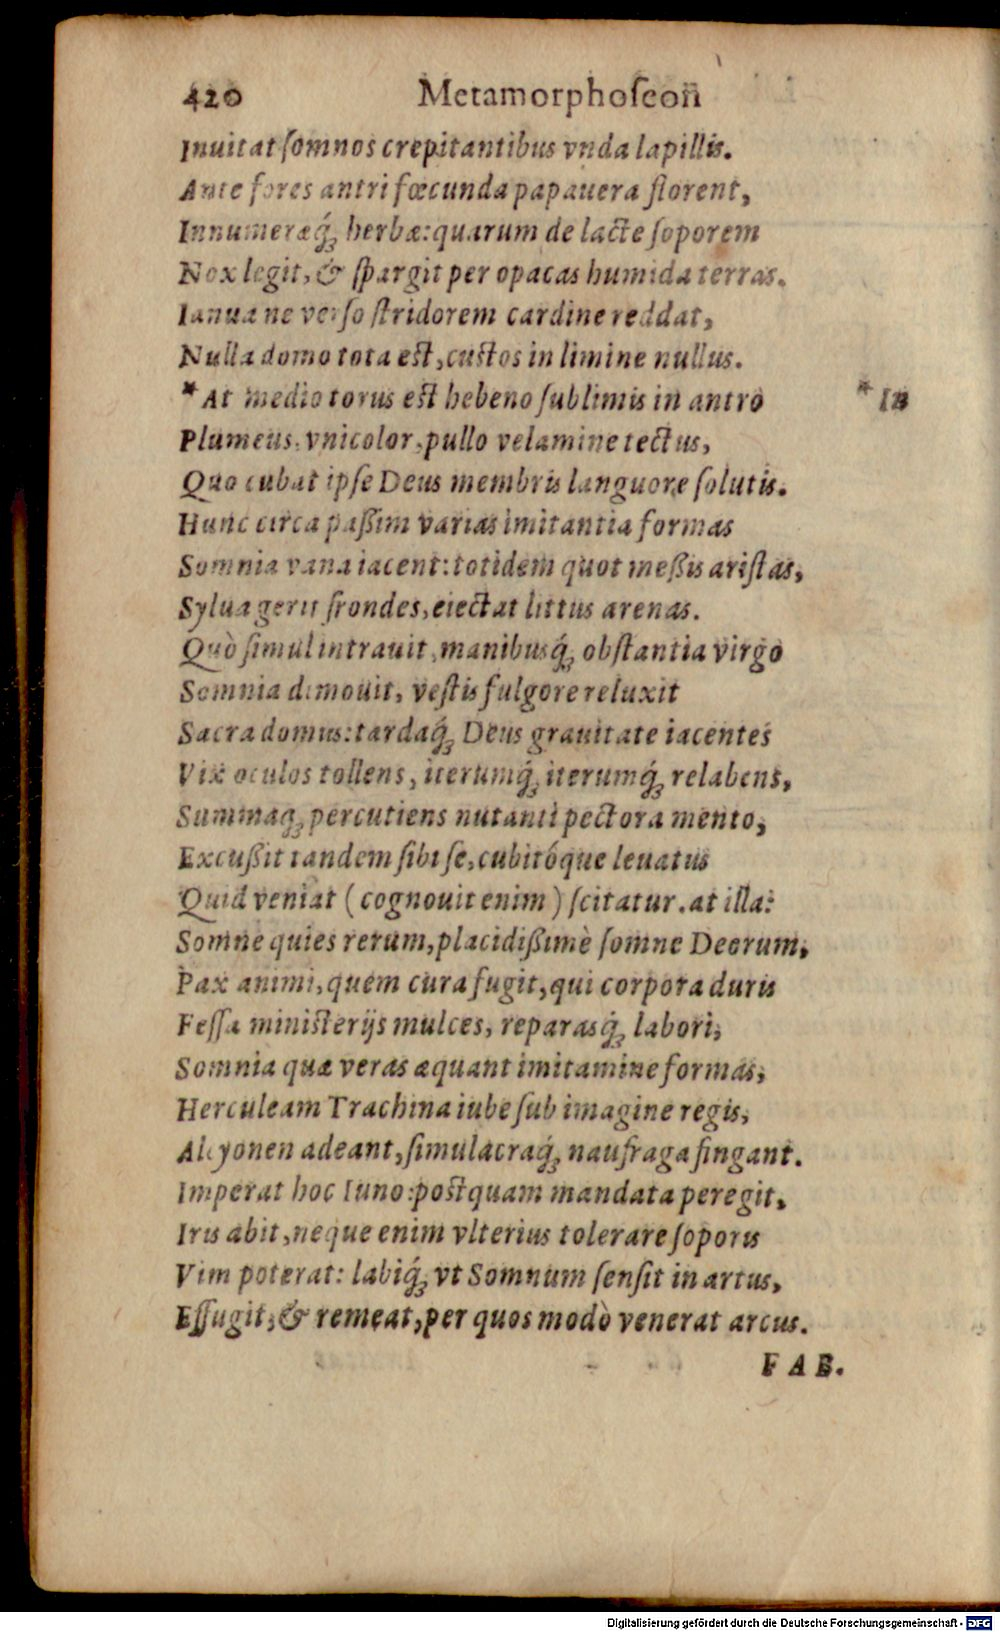 420 Metamorphoſeon̄
Inuitat ſomnos crepitantibus vnda lapillis.
Ante fores antri fœcunda papauera florent,
Innumeræq́; herbæ: quarum de lacte ſoporem
Nox legit, & ſpargit per opacas humida terras.
Ianua ne verſo ſtridorem cardine reddat,
Nulla domo tota eſt, cuſtos in limine nullus.
* At medio torus eſt hebeno ſublimis in antro * In
Plumeus, vnicolor, pullo velamine tectus,
Quo cubat ipſe Deus membris languore ſolutis.
Hunc circa paßim varias imitantia formas
Somnia vana iacent: totidem quot meßis ariſtas,
Sylua gerit frondes, eiectat littus arenas.
Quò ſimul intrauit, manibusq́; obſtantia virgo
Somnia dimouit, veſtis fulgore reluxit
Sacra domus: tardaq́; Deus grauitate iacentes
Vix oculos tollens, iterumq́; iterumq́; relabens,
Summaq; percutiens nutanti pectora mento,
Excußit tandem ſibi ſe, cubitóque leuatus
Quid veniat (cognouit enim) ſcitatur. at illa:
Somne quies rerum, placidißimè ſomne Deorum,
Pax animi, quem cura fugit, qui corpora duris
Feſſa miniſterijs mulces, reparasq́; labori;
Somnia quæ veras æquant imitamine formas,
Herculeam Trachina iube ſub imagine regis,
Alcyonen adeant, ſimulacraq́; naufraga fingant.
Imperat hoc Iuno: poſtquam mandata peregit,
Iris abit, neque enim vlterius tolerare ſoporis
Vim poterat: labiq́; vt Somnum ſenſit in artus,
Effugit, & remeat, per quos modò venerat arcus.
FAB.
Digitalisierung gefördert durch die Deutsche Forschungsgemeinschaft - DFG